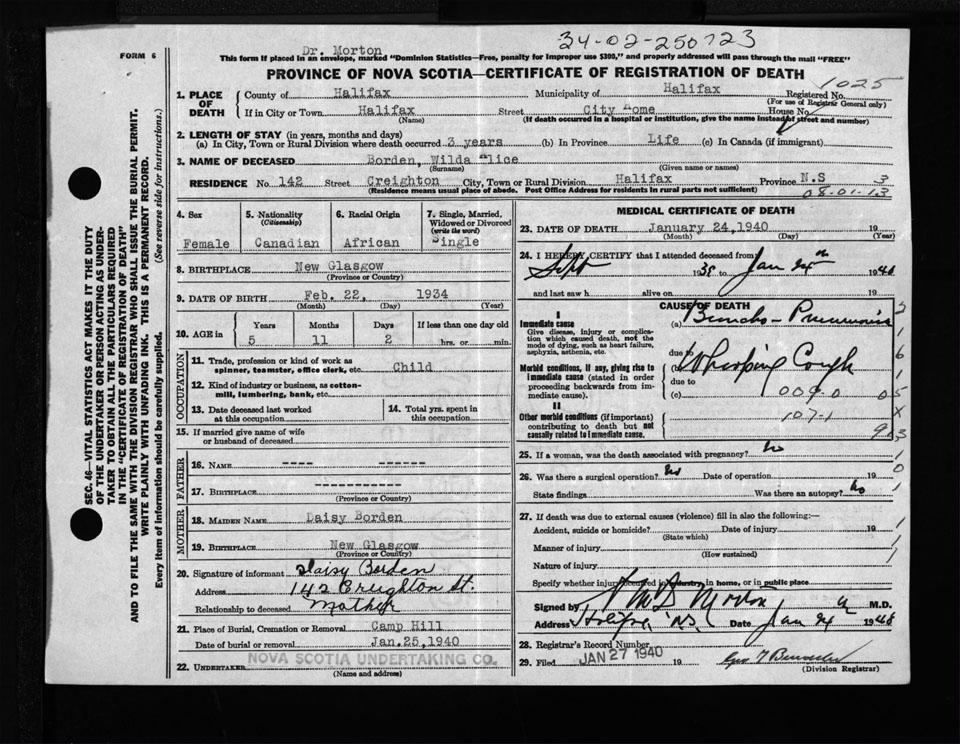 34-02-250723
Dr. Morton
FORM 6
This form if placed in an envelope, marked "Dominion Statistics—Free, penalty for improper use $300," and properly addressed will pass through the mail "FREE"
PROVINCE OF NOVA SCOTIA—CERTIFICATE OF REGISTRATION OF DEATH
SEC. 46—VITAL STATISTICS ACT MAKES IT THE DUTY
OF THE UNDERTAKER OR PERSON ACTING AS UNDER-
TAKER TO OBTAIN ALL THE PARTICULARS REQUIRED
IN THE "CERTIFICATE OF REGISTRATION OF DEATH"
AND TO FILE THE SAME WITH THE DIVISION REGISTRAR WHO SHALL ISSUE THE BURIAL PERMIT.
WRITE PLAINLY WITH UNFADING INK. THIS IS A PERMANENT RECORD.
Every item of information should be carefully supplied. (See reverse side for instructions.)
1. PLACE OF DEATH
County of Halifax Municipality of Halifax Registered No. 1025
(For use of Registrar General only)
If in City or Town Halifax Street City Home House No.
(Name) (If death occurred in a hospital or institution, give the name instead of street and number)
2. LENGTH OF STAY (in years, months and days)
(a) In City, Town or Rural Division where death occurred 3 years (b) In Province Life (c) In Canada (if immigrant)
3. NAME OF DECEASED Borden, Wilda Alice
(Surname) (Given name or names)
RESIDENCE No 142 Street Creighton City, Town or Rural Division Halifax Province N.S 3
(Residence means usual place of abode. Post Office Address for residents in rural parts not sufficient) 08-01-13
4. Sex
Female
5. Nationality
(Citizenship)
Canadian
6. Racial Origin
African
7. Single, Married,
Widowed or Divorced
(write the word)
Single
8. BIRTHPLACE New Glasgow
(Province or Country)
9. DATE OF BIRTH Feb. 22, 1934
(Month) (Day) (Year)
10. AGE in
Years Months Days If less than one day old
5 11 2 hrs. or min.
OCCUPATION
11. Trade, profession or kind of work as
spinner, teamster, office clerk, etc. Child
12. Kind of industry or business, as cotton-
mill, lumbering, bank, etc.
13. Date deceased last worked
at this occupation
14. Total yrs. spent in
this occupation
15. If married give name of wife
or husband of deceased
FATHER
16. NAME ---- ------
17. BIRTHPLACE ------------
(Province or Country)
MOTHER
18. MAIDEN NAME Daisy Borden
19. BIRTHPLACE New Glasgow
(Province or Country)
20. Signature of informant Daisy Borden
Address 142 Creighton St.
Relationship to deceased Mother
21. Place of Burial, Cremation or Removal Camp Hill
Date of burial or removal Jan. 25, 1940
22. UNDERTAKER NOVA SCOTIA UNDERTAKING CO.
(Name and address)
MEDICAL CERTIFICATE OF DEATH
23. DATE OF DEATH January 24, 1940 19
(Month) (Day) (Year)
24. I HEREBY CERTIFY that I attended deceased from
Sept 1938 to Jan 24th 1940
and last saw h alive on 19
CAUSE OF DEATH
I
Immediate cause
Give disease, injury or complica-
tion which caused death, not the
mode of dying, such as heart failure,
asphyxia, asthenia, etc.
(a) Broncho-Pneumonia
due to
Morbid conditions, if any, giving rise to
immediate cause (stated in order
proceeding backwards from im-
mediate cause).
(b) Whooping Cough
due to
(c) 009.0
II
Other morbid conditions (if important)
contributing to death but not
causally related to immediate cause.
107-1
25. If a woman, was the death associated with pregnancy? No
26. Was there a surgical operation? No Date of operation 19
State findings Was there an autopsy? No
27. If death was due to external causes (violence) fill in also the following:—
Accident, suicide or homicide? Date of injury 19
(State which)
Manner of injury
(How sustained)
Nature of injury
Specify whether injury occurred in industry, in home, or in public place
Signed by Morton M.D.
Address Halifax N.S. Date Jan 24th 1940
28. Registrar's Record Number
29. Filed JAN 27 1940 19
(Division Registrar)